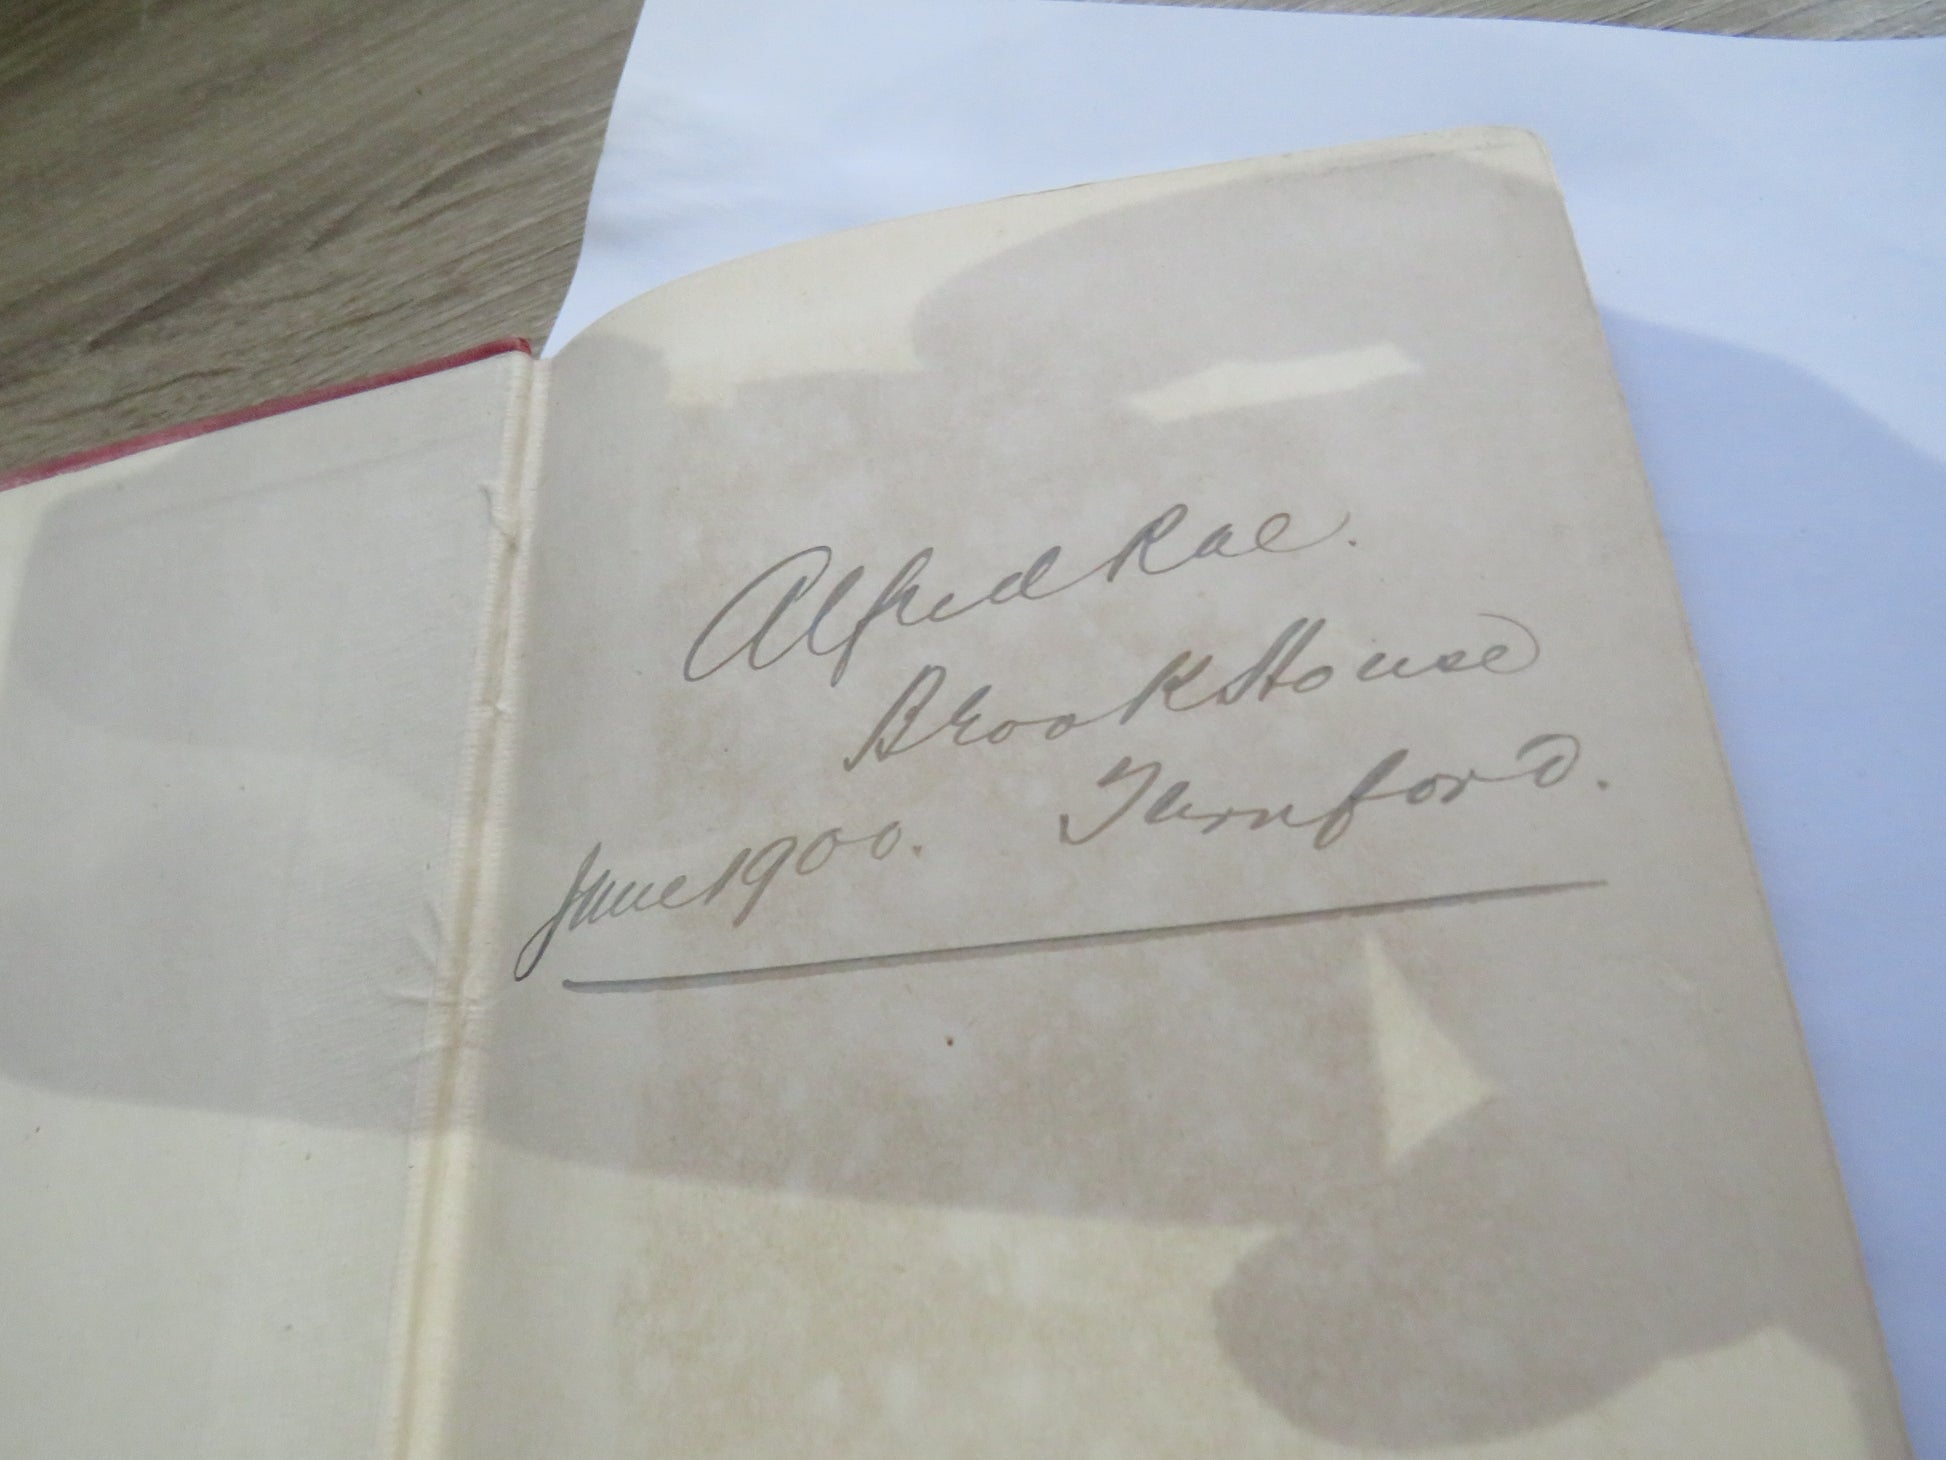 Alfred Rae.
Brook House
June 1900. Turnford.